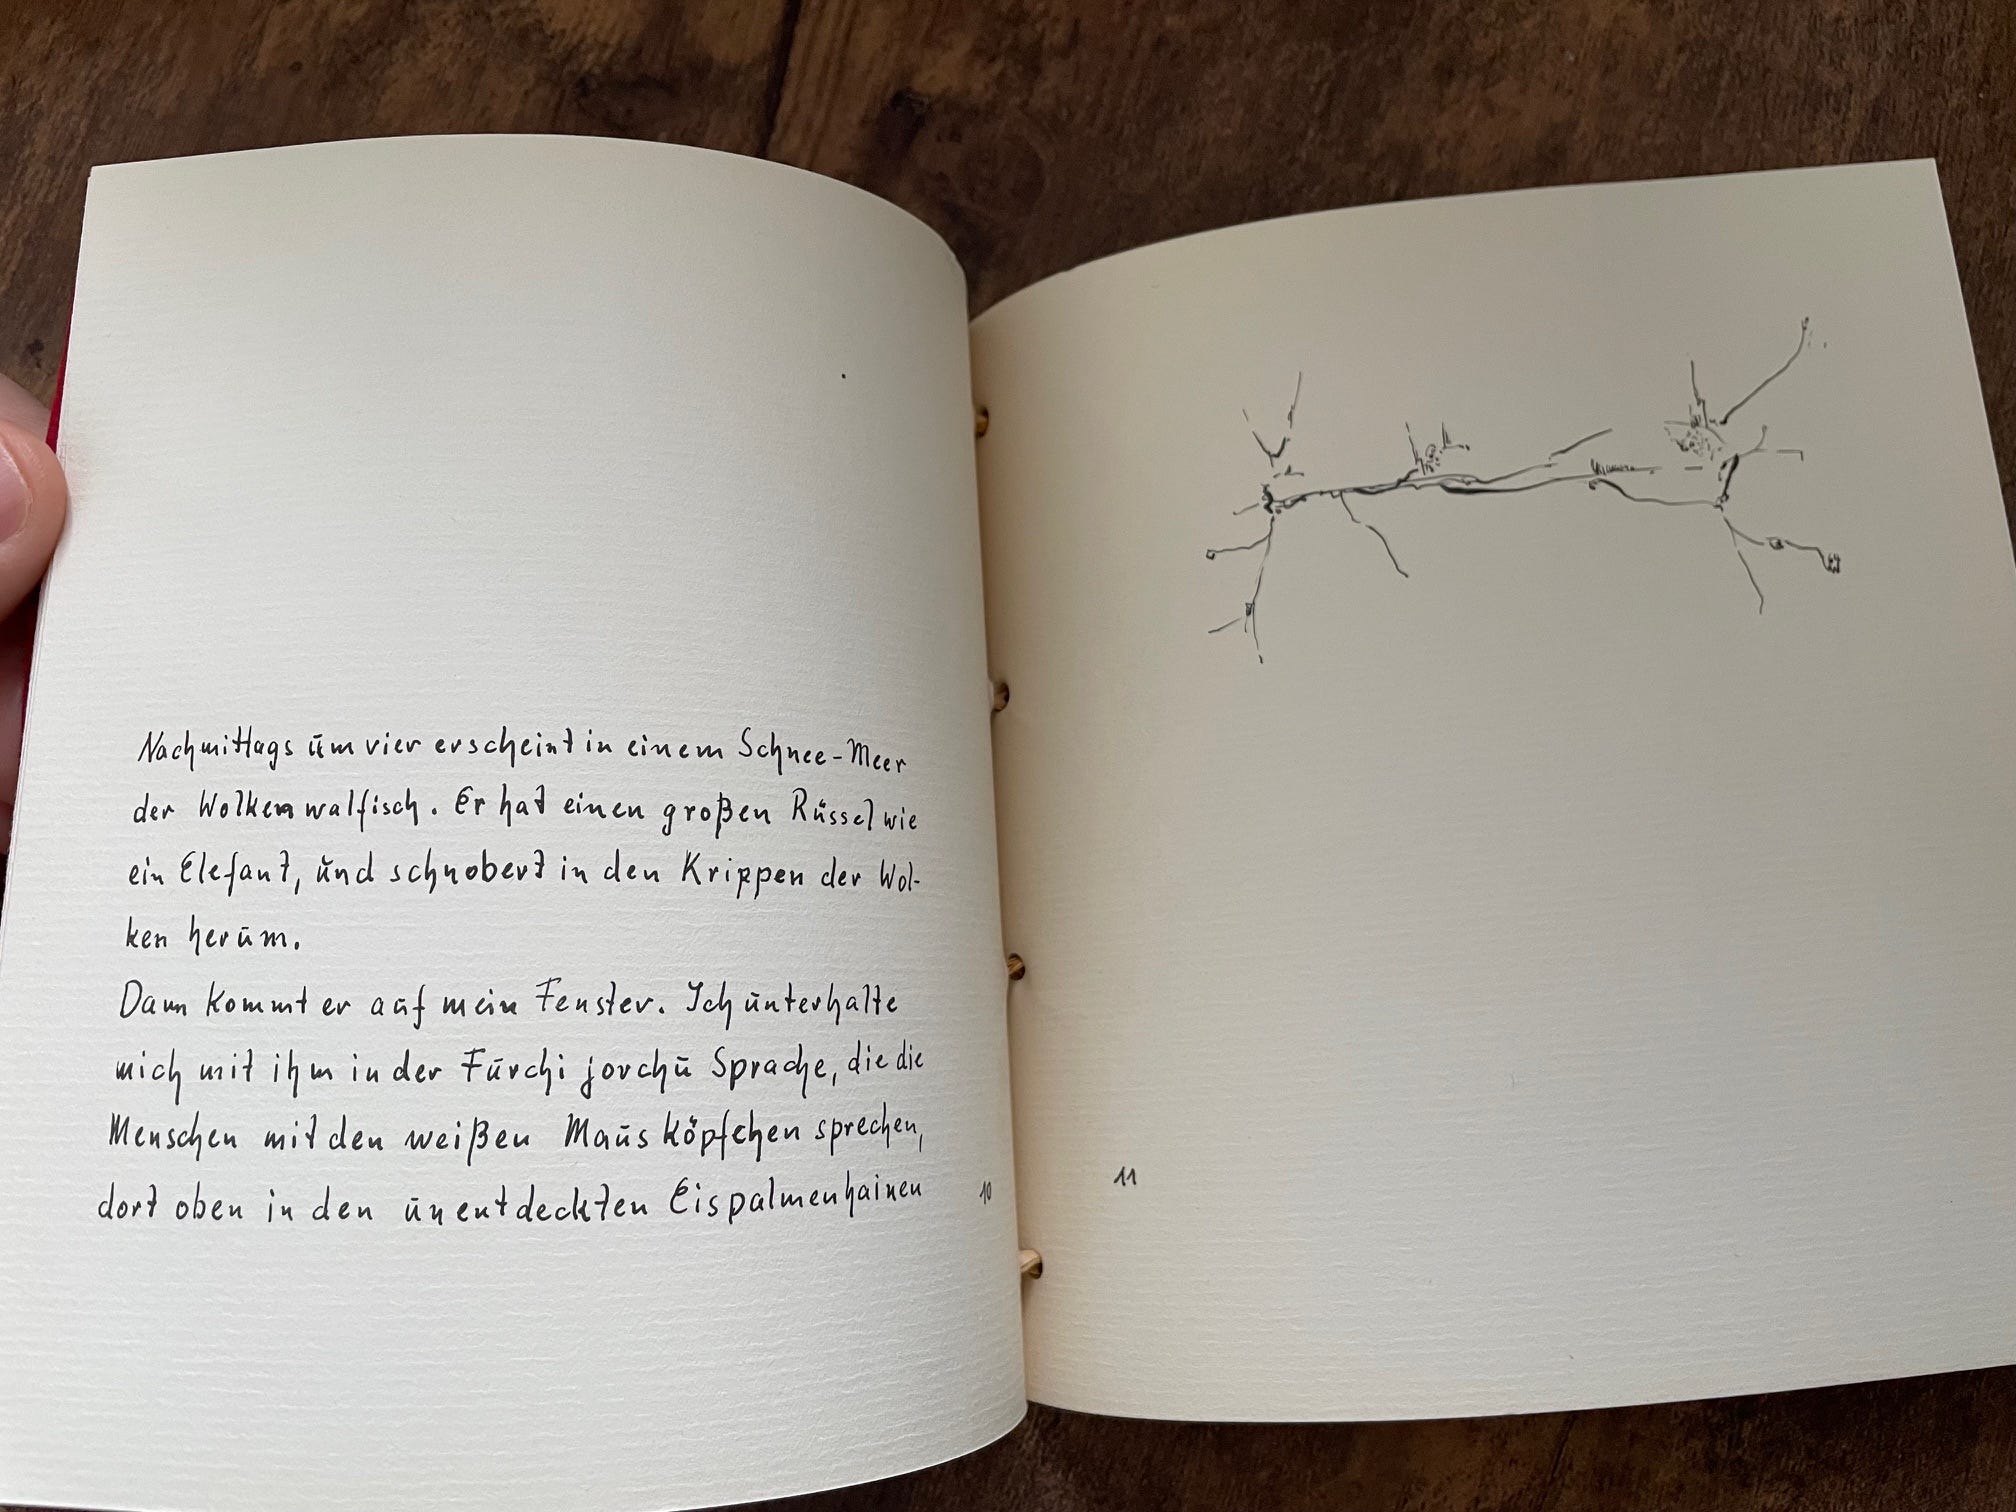 Nachmittags um vier erscheint in einem Schnee-Meer
der Wolkenwalfisch. Er hat einen großen Rüssel wie
ein Elefant, und schnobert in den Krippen der Wol-
ken herum.
Dann kommt er auf mein Fenster. Ich unterhalte
mich mit ihm in der Furchi jorchu Sprache, die die
Menschen mit den weißen Maus köpfchen sprechen,
dort oben in den unentdeckten Eispalmenhainen
10
11